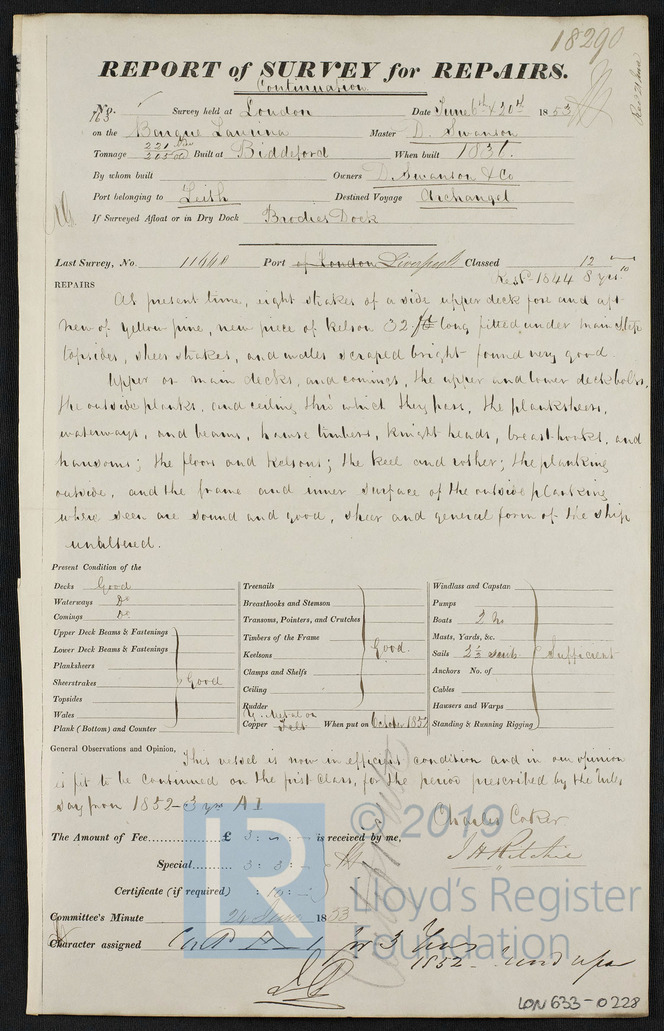 18290
REPORT of SURVEY for REPAIRS.
Continuation
No. 763 Survey held at London Date June 6th & 20th 1853
on the Barque Laurina Master D. Swanson
Tonnage 221 New 205 Old Built at Biddeford When built 1836.
By whom built Owners D. Swanson & Co
Port belonging to Leith Destined Voyage Archangel
If Surveyed Afloat or in Dry Dock Brodies Dock
Last Survey, No. 11440 Port of London Liverpool Classed 12
Restd 1844 8 yrs
REPAIRS
At present time, eight strakes of a side upper deck fore and aft
new of yellow pine, new piece of Kelson 32 ft long fitted under main step
topsides, sheer strakes, and wales scraped bright found very good.
Upper or main decks, and comings, the upper and lower deck bolts,
the outside planks, and ceiling thro' which they pass, the planksheers,
waterways, and beams, hawse timbers, Knight heads, breast hooks, and
transoms; the floors and Kelsons; the Keel and rother; the planking
outside, and the frame and inner surface of the outside planking
where seen are sound and good, sheer and general form of the ship
unaltered.
Present Condition of the
Decks Good
Waterways Do
Comings Do
Upper Deck Beams & Fastenings
Lower Deck Beams & Fastenings
Planksheers
Sheerstrakes Good
Topsides
Wales
Plank (Bottom) and Counter
Treenails
Breasthooks and Stemson
Transoms, Pointers, and Crutches
Timbers of the Frame
Keelsons Good.
Clamps and Shelfs
Ceiling
Rudder
Copper Y. Metal on Felt When put on October 1852
Windlass and Capstan
Pumps
Boats 2 No
Masts, Yards, &c.
Sails 2½ suits Sufficient
Anchors No. of
Cables
Hawsers and Warps
Standing & Running Rigging
General Observations and Opinion,
This vessel is now in efficient condition and in our opinion
is fit to be continued on the first Class, for the period prescribed by the rules
Say from 1852 - 3 yrs A1
Charles Coker
J H Ritchie
The Amount of Fee £ 3 : - : - is received by me,
Special 3 : 3 : -
Certificate (if required) : 10 : -
Committee's Minute 24 June 1853
Character assigned A 1 for 3 Years
1852
© 2019
Lloyd's Register
Foundation
LR
LON 633-0228